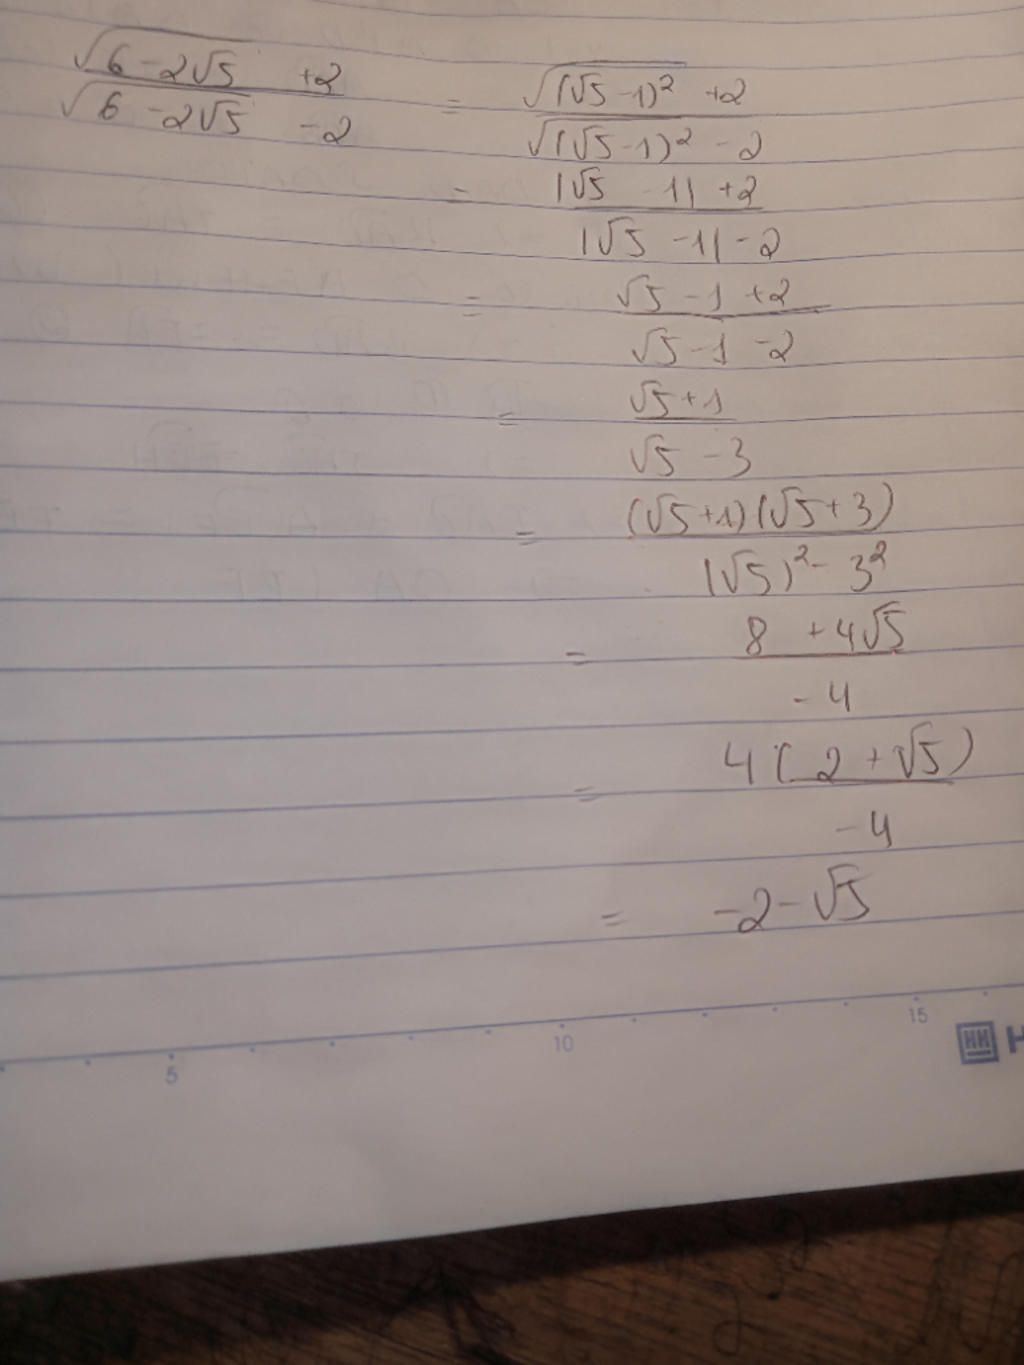 √(6 - 2√5) + 2 = √((√5 - 1)²) + 2
√(6 - 2√5) - 2 √((√5 - 1)²) - 2
= |√5 - 1| + 2
|√5 - 1| - 2
= √5 - 1 + 2
√5 - 1 - 2
= √5 + 1
√5 - 3
= (√5 + 1)(√5 + 3)
(√5)² - 3²
= 8 + 4√5
- 4
= 4(2 + √5)
- 4
= -2 - √5
5 10 15
HH H